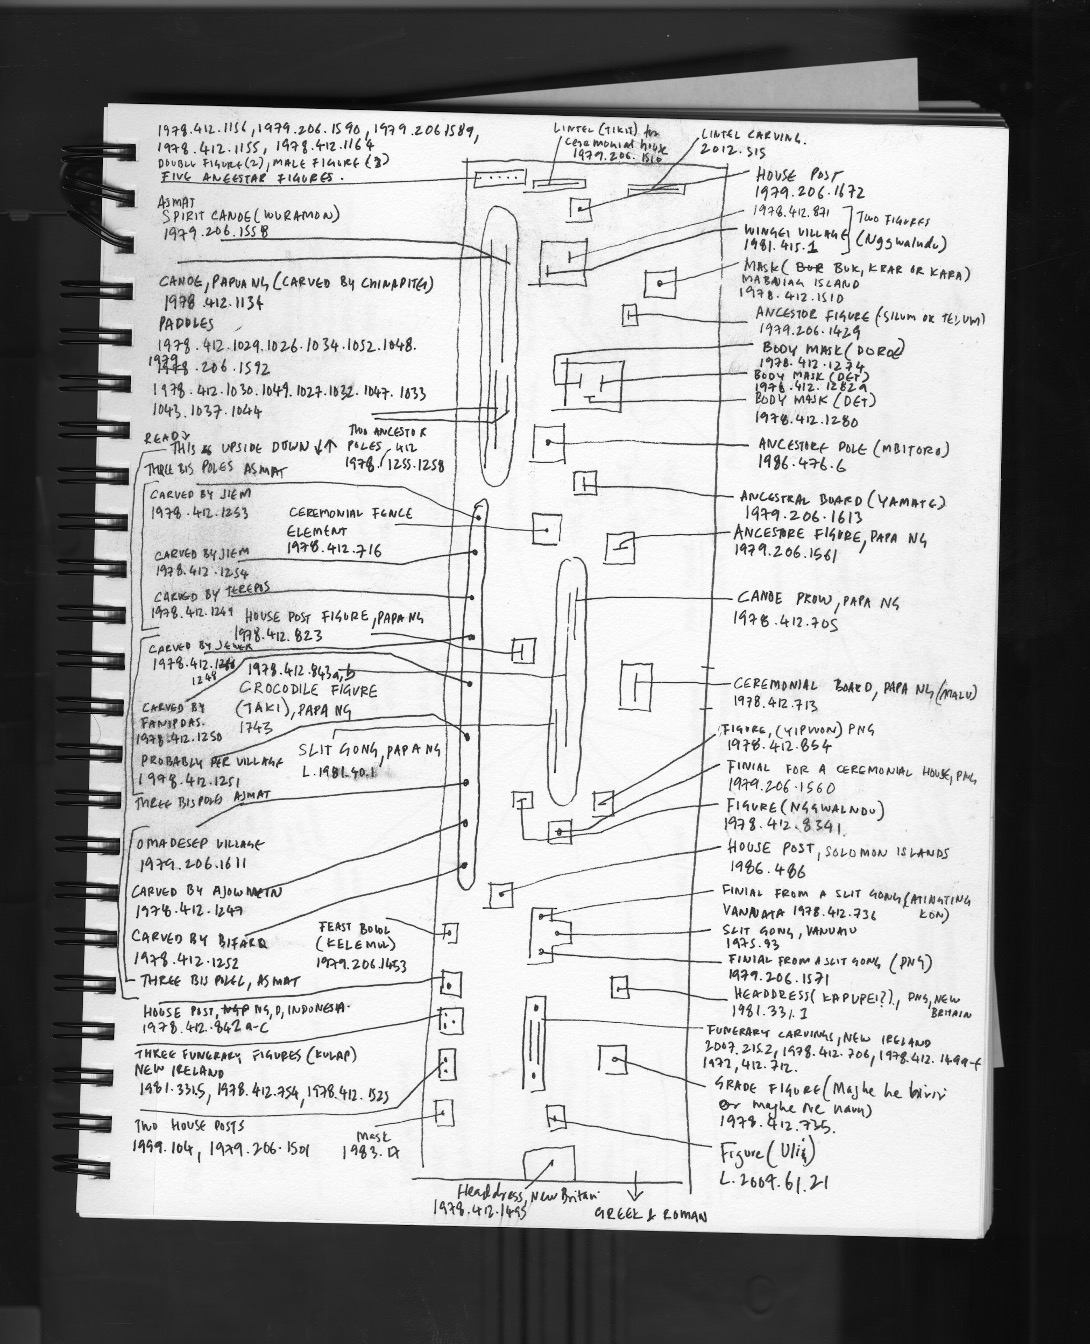 1978.412.1156, 1979.206.1590, 1979.206.1589,
1978.412.1155, 1978.412.1164
DOUBLE FIGURE(2), MALE FIGURE (3)
FIVE ANCESTAR FIGURES.
ASMAT
SPIRIT CANOE (WURAMON)
1979.206.1558
CANOE, PAPUA NG (CARVED BY CHINAPITG)
1978.412.1134
PADDLES
1978.412.1029.1026.1034.1052.1048.
1979.206.1592
1978.412.1030.1049.1027.1032.1047.1033
1043.1037.1044
TWO ANCESTOR
POLES
1978.412.1255.1258
READ
THIS IS UPSIDE DOWN ↓↑
THREE BIS POLES ASMAT
CARVED BY JIEM
1978.412.1253
CEREMONIAL FENCE
ELEMENT
1978.412.716
CARVED BY JIEM
1978.412.1254
CARVED BY TEREPOS
1978.412.1249
HOUSE POST FIGURE, PAPA NG
1978.412.823
CARVED BY JEWER
1978.412.
1248
1978.412.843a,b
CROCODILE FIGURE
(TAKI), PAPA NG
1743
CARVED BY
FANIPDAS.
1978.412.1250
SLIT GONG, PAPA NG
L.1981.40.1
PROBABLY PER VILLAGE
1978.412.1251
THREE BIS POLES ASMAT
OMADESEP VILLAGE
1979.206.1611
CARVED BY AJOWMETN
1978.412.1247
CARVED BY BIFARQ
1978.412.1252
THREE BIS POLEL, ASMAT
FEAST BOWL
(KELEMUL)
1979.206.1453
HOUSE POST, NG, D, INDONESIA
1978.412.842a-c
THREE FUNERARY FIGURES (KULAP)
NEW IRELAND
1981.331.5, 1978.412.754, 1978.412.1525
TWO HOUSE POSTS
1999.104, 1979.206.1501
Mask
1983.17
LINTEL (TIKIT) for
ceremonial house
1979.206.1516
LINTEL CARVING.
2012.515
HOUSE POST
1979.206.1672
1978.412.871
WINGEI VILLAGE
1981.415.1
TWO FIGURES
(Nggwalndu)
MASK (BUK, KRAR OR KARA)
MABUIAG ISLAND
1978.412.1510
ANCESTOR FIGURE (SILUM OR TELUM)
1979.206.1429
BODY MASK (DOROE)
1978.412.1274
BODY MASK (DET)
1978.412.1282a
BODY MASK (DET)
1978.412.1280
ANCESTORE POLE (MBITORO)
1986.476.6
ANCESTRAL BOARD (YAMATE)
1979.206.1613
ANCESTORE FIGURE, PAPA NG
1979.206.1561
CANOE PROW, PAPA NG
1978.412.705
CEREMONIAL BOARD, PAPA NG (MALU)
1978.412.713
FIGURE, (YIPWON) PNG
1978.412.854
FINIAL FOR A CEREMONIAL HOUSE, PNG
1979.206.1560
FIGURE (NGGWALNDU)
1978.412.8341
HOUSE POST, SOLOMON ISLANDS
1986.486
FINIAL FROM A SLIT GONG (ATINGTING
KON)
VANUATA 1978.412.736
SLIT GONG, VANUATU
1975.93
FINIAL FROM A SLIT GONG (PNG)
1979.206.1571
HEADDRESS (KAPUPEI?)., PNG, NEW
BRITAIN
1981.331.1
FUNERARY CARVINGS, NEW IRELAND
2007.215.2, 1978.412.706, 1978.412.1499-f
1972.412.712.
GRADE FIGURE (Maghe he biriri
or maghe ne naun)
1978.412.735.
Figure (Uli)
L.2009.61.21
Headdress, New Britain
1978.412.1495
GREEK & ROMAN